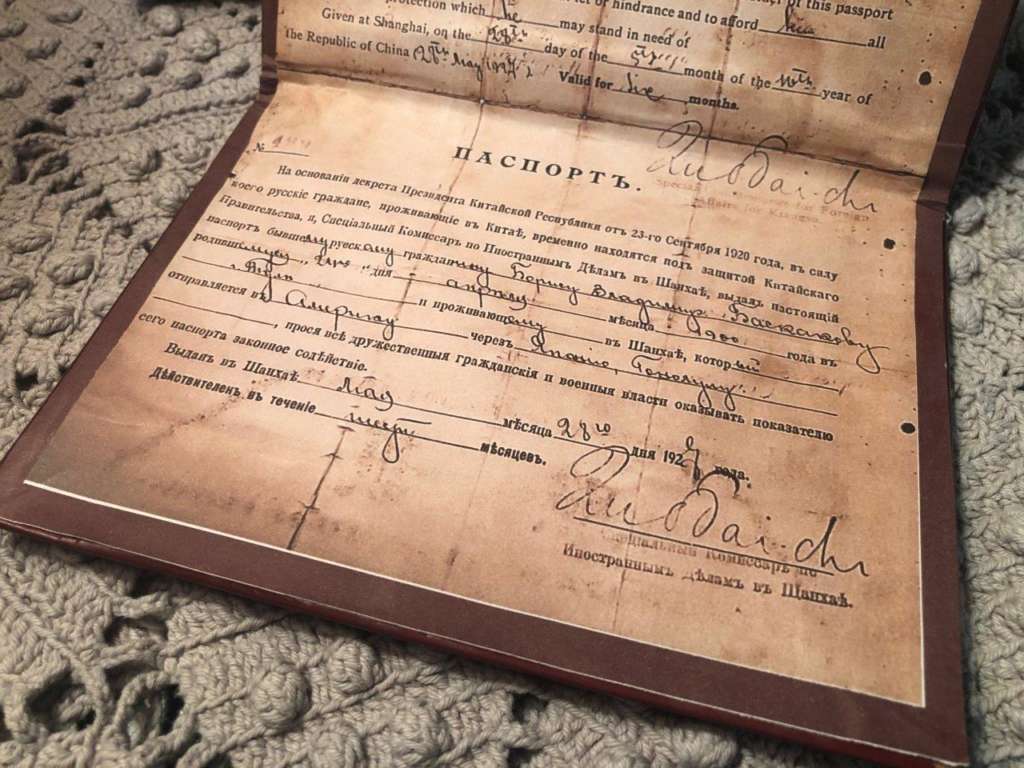 protection which he or hindrance and to afford him all of this passport
may stand in need of
Given at Shanghai, on the 28th day of the 5th month of the 10th year of
The Republic of China (28th May 192
Valid for Six months.
№
ПАСПОРТЪ.
На основаніи декрета Президента Китайской Республики отъ 23-го Сентября 1920 года, въ силу
коего русскіе граждане, проживающіе въ Китаѣ, временно находятся подъ защитой Китайскаго
Правительства, я, Спеціальный Комиссаръ по Иностраннымъ Дѣламъ въ Шанхаѣ, выдалъ настоящій
паспортъ бывшему русскому гражданину Борису Владимир. Баскакову
родившемуся дня апрѣля мѣсяца 1900 года въ
г. и проживающему въ Шанхаѣ, который
отправляется въ Америку черезъ Японію, Гонолулу
, прося всѣ дружественныя гражданскія и военныя власти оказывать показателю
сего паспорта законное содѣйствіе.
Выданъ въ Шанхаѣ Мая мѣсяца 28го дня 192 года.
Дѣйствителенъ въ теченіе шести мѣсяцевъ.
Спеціальный Комиссаръ по
Иностраннымъ Дѣламъ въ Шанхаѣ.